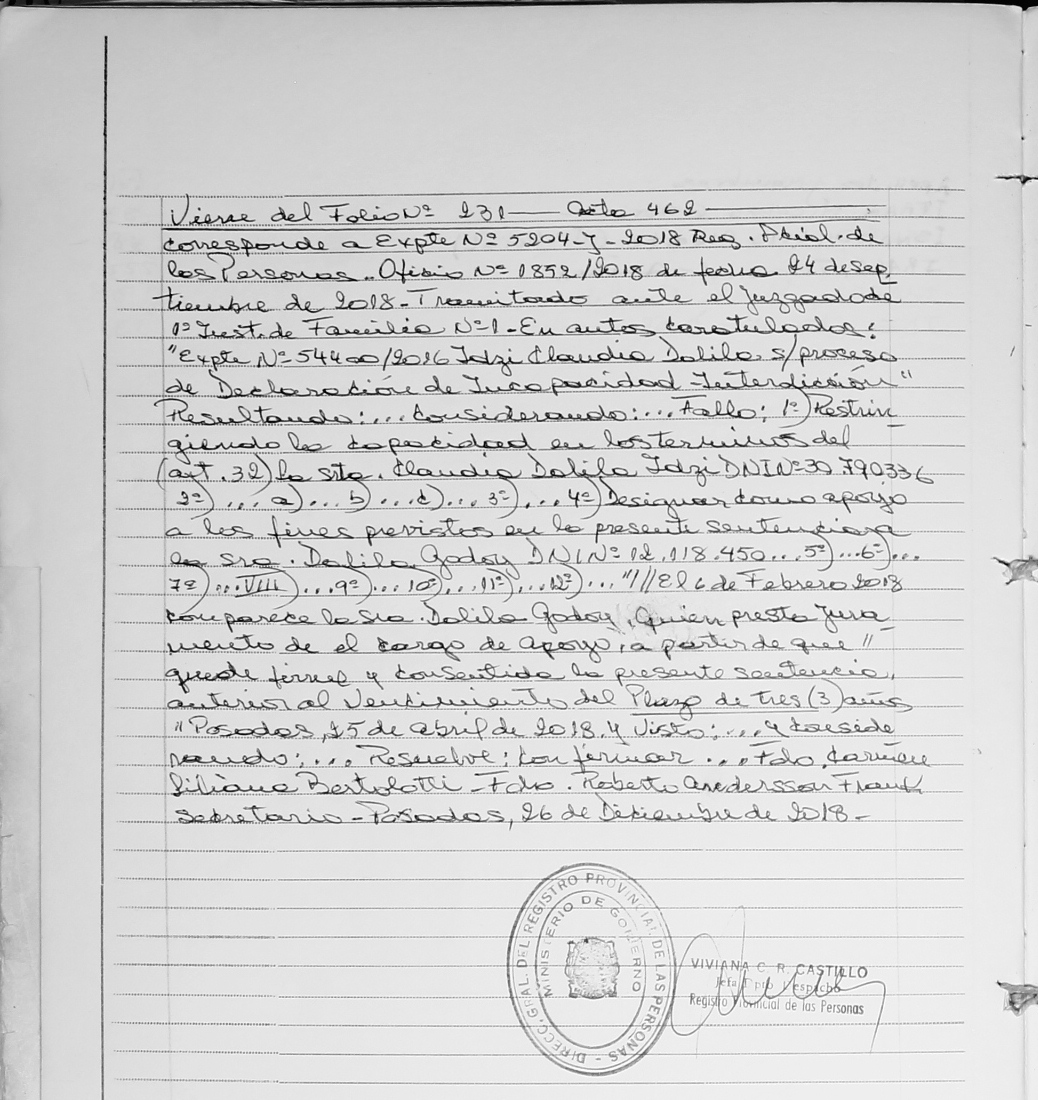 Viene del Folio Nº 231 — Acta 462 —
corresponde a Expte Nº 5204-J-2018 Reg. Pcial. de
las Personas. Oficio Nº 1852/2018 de fecha 24 de sep
tiembre de 2018 - Tramitado ante el Juzgado de
1º Inst. de Familia Nº 1 - En autos caratulados:
"Expte Nº 54400/2016 Idzi Claudia Dalila s/ proceso
de Declaración de Incapacidad - Interdicción"
Resultando: ... Considerando: ... Fallo: 1º) Restrin
giendo la capacidad en los terminos del
(art. 32) la srta. Claudia Dalila Idzi DNI Nº 30.790336
2º) ... a) ... b) ... c) ... 3º) ... 4º) Designar como apoyo
a los fines previstos en la presente sentencia a
la Sra. Dalila Godoy DNI Nº 12.118.450 ... 5º) ... 6º) ...
7º) ... VIII) ... 9º) ... 10º) ... 11º) ... 12º) ... "/// El 6 de Febrero 2018
comparece la Sra Dalila Godoy, Quien presta Jura
mento de el cargo de Apoyo, a partir de que "
quede firme y consentida la presente sentencia,
anterior al Vencimiento del Plazo de tres (3) años
"Posadas, 25 de abril de 2018. Y Visto: ... y Conside
rando: ... Resuelve: Confirmar ... Fdo. Carmen
Liliana Bertolotti - Fdo. Roberto Andersson Frank
Secretario - Posadas, 26 de Diciembre de 2018 -
DIRECC. GRAL. DEL REGISTRO PROVINCIAL DE LAS PERSONAS
MINISTERIO DE GOBIERNO
VIVIANA C. R. CASTILLO
Jefa Dpto Despacho
Registro Provincial de las Personas